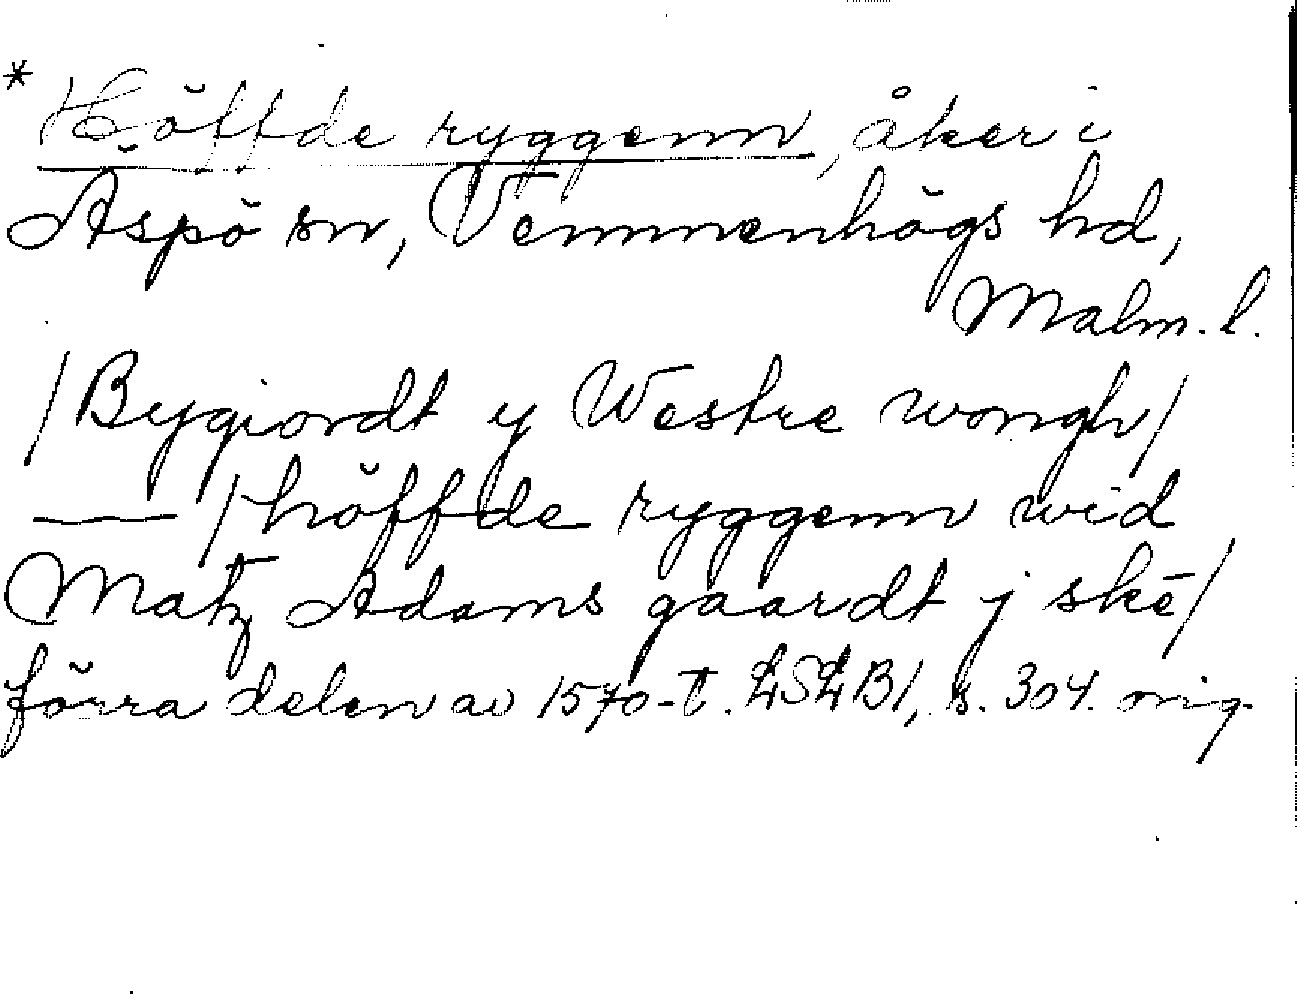 * Höffde ryggenn, åker i
Aspö sn, Vemmenhögs hd,
Malm. l.
/Bygiordt y Westre wongh/
— /höffde ryggenn wid
Matz Adams gaardt j skē/
förra delen av 1570-t. LSLB1, s. 304. orig.